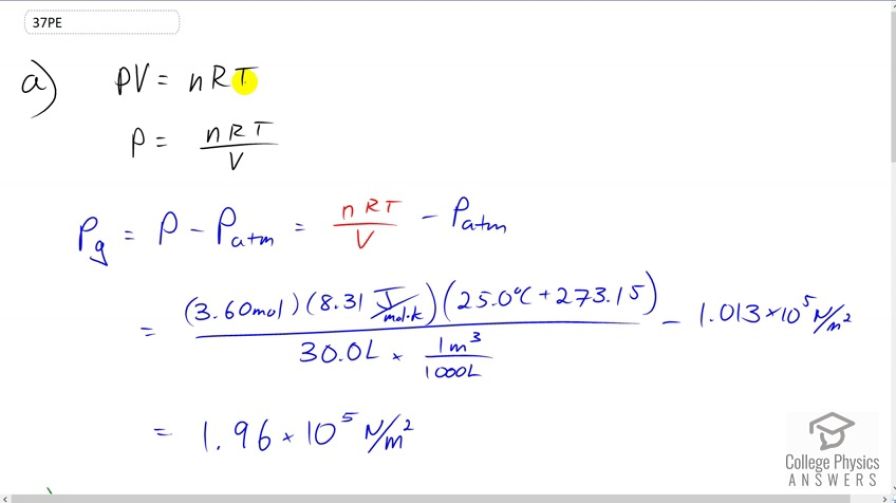 37PE
a) PV = nRT
P = nRT/V
Pg = P - Patm = nRT/V - Patm
= (3.60mol)(8.31 J/mol·K)(25.0°C + 273.15) / 30.0L × 1m³/1000L - 1.013×10⁵ N/m²
= 1.96×10⁵ N/m²
College Physics
ANSWERS